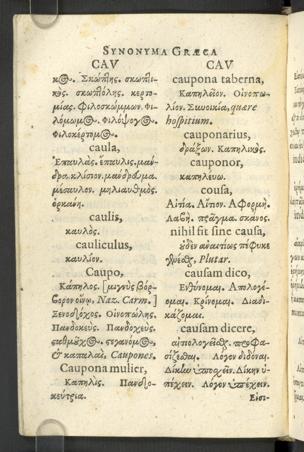 SYNONYMA GRÆCA
CAV
κ@. Σκώπτης. σκωπτι-
κός. σκωπτόλης. κερτο-
μίας. Φιλοσκώμμων. Φι-
λόμωμ@. Φιλόψογ@.
Φιλοκέρτομ@.
caula,
Ἔπαυλις.
μέσαυλον. μηλιαυθμός.
caulis,
καυλός.
cauliculus,
καυλίον.
Caupo,
Κάπηλος. [μιγνὺς βόρ-
βορον οἴνῳ, Naz. Carm.]
Ξενοδόχος. Οἰνοπώλης.
Πανδοκεύς. Πανδοχεύς.
& Caupones.
Caupona mulier,
Καπηλίς. Πανδο-
κεύτρια.
CAV
caupona taberna,
Καπηλεῖον. Οἰνοπω-
λίον. Συνοικία, quære
hospitium.
cauponarius,
Καπηλικός.
cauponor,
καπηλεύω.
causa,
Αἰτία. Αἴτιον. Ἀφορμή.
Λαβή. πρᾶγμα.
nihil fit sine causa,
οὐδὲν ἀναιτίως πέφυκε
Plutar.
causam dico,
Εὐθύνομαι. Ἀπολογέ-
ομαι. Κρίνομαι. Διαδι-
κάζομαι.
causam dicere,
ἀπολογεῖσθαι. προφα-
σίζεσθαι. Λόγον διδόναι.
Δίκην ὑποσχεῖν. Δίκην ὑ-
πέχειν. Λόγον ὑπέχειν.